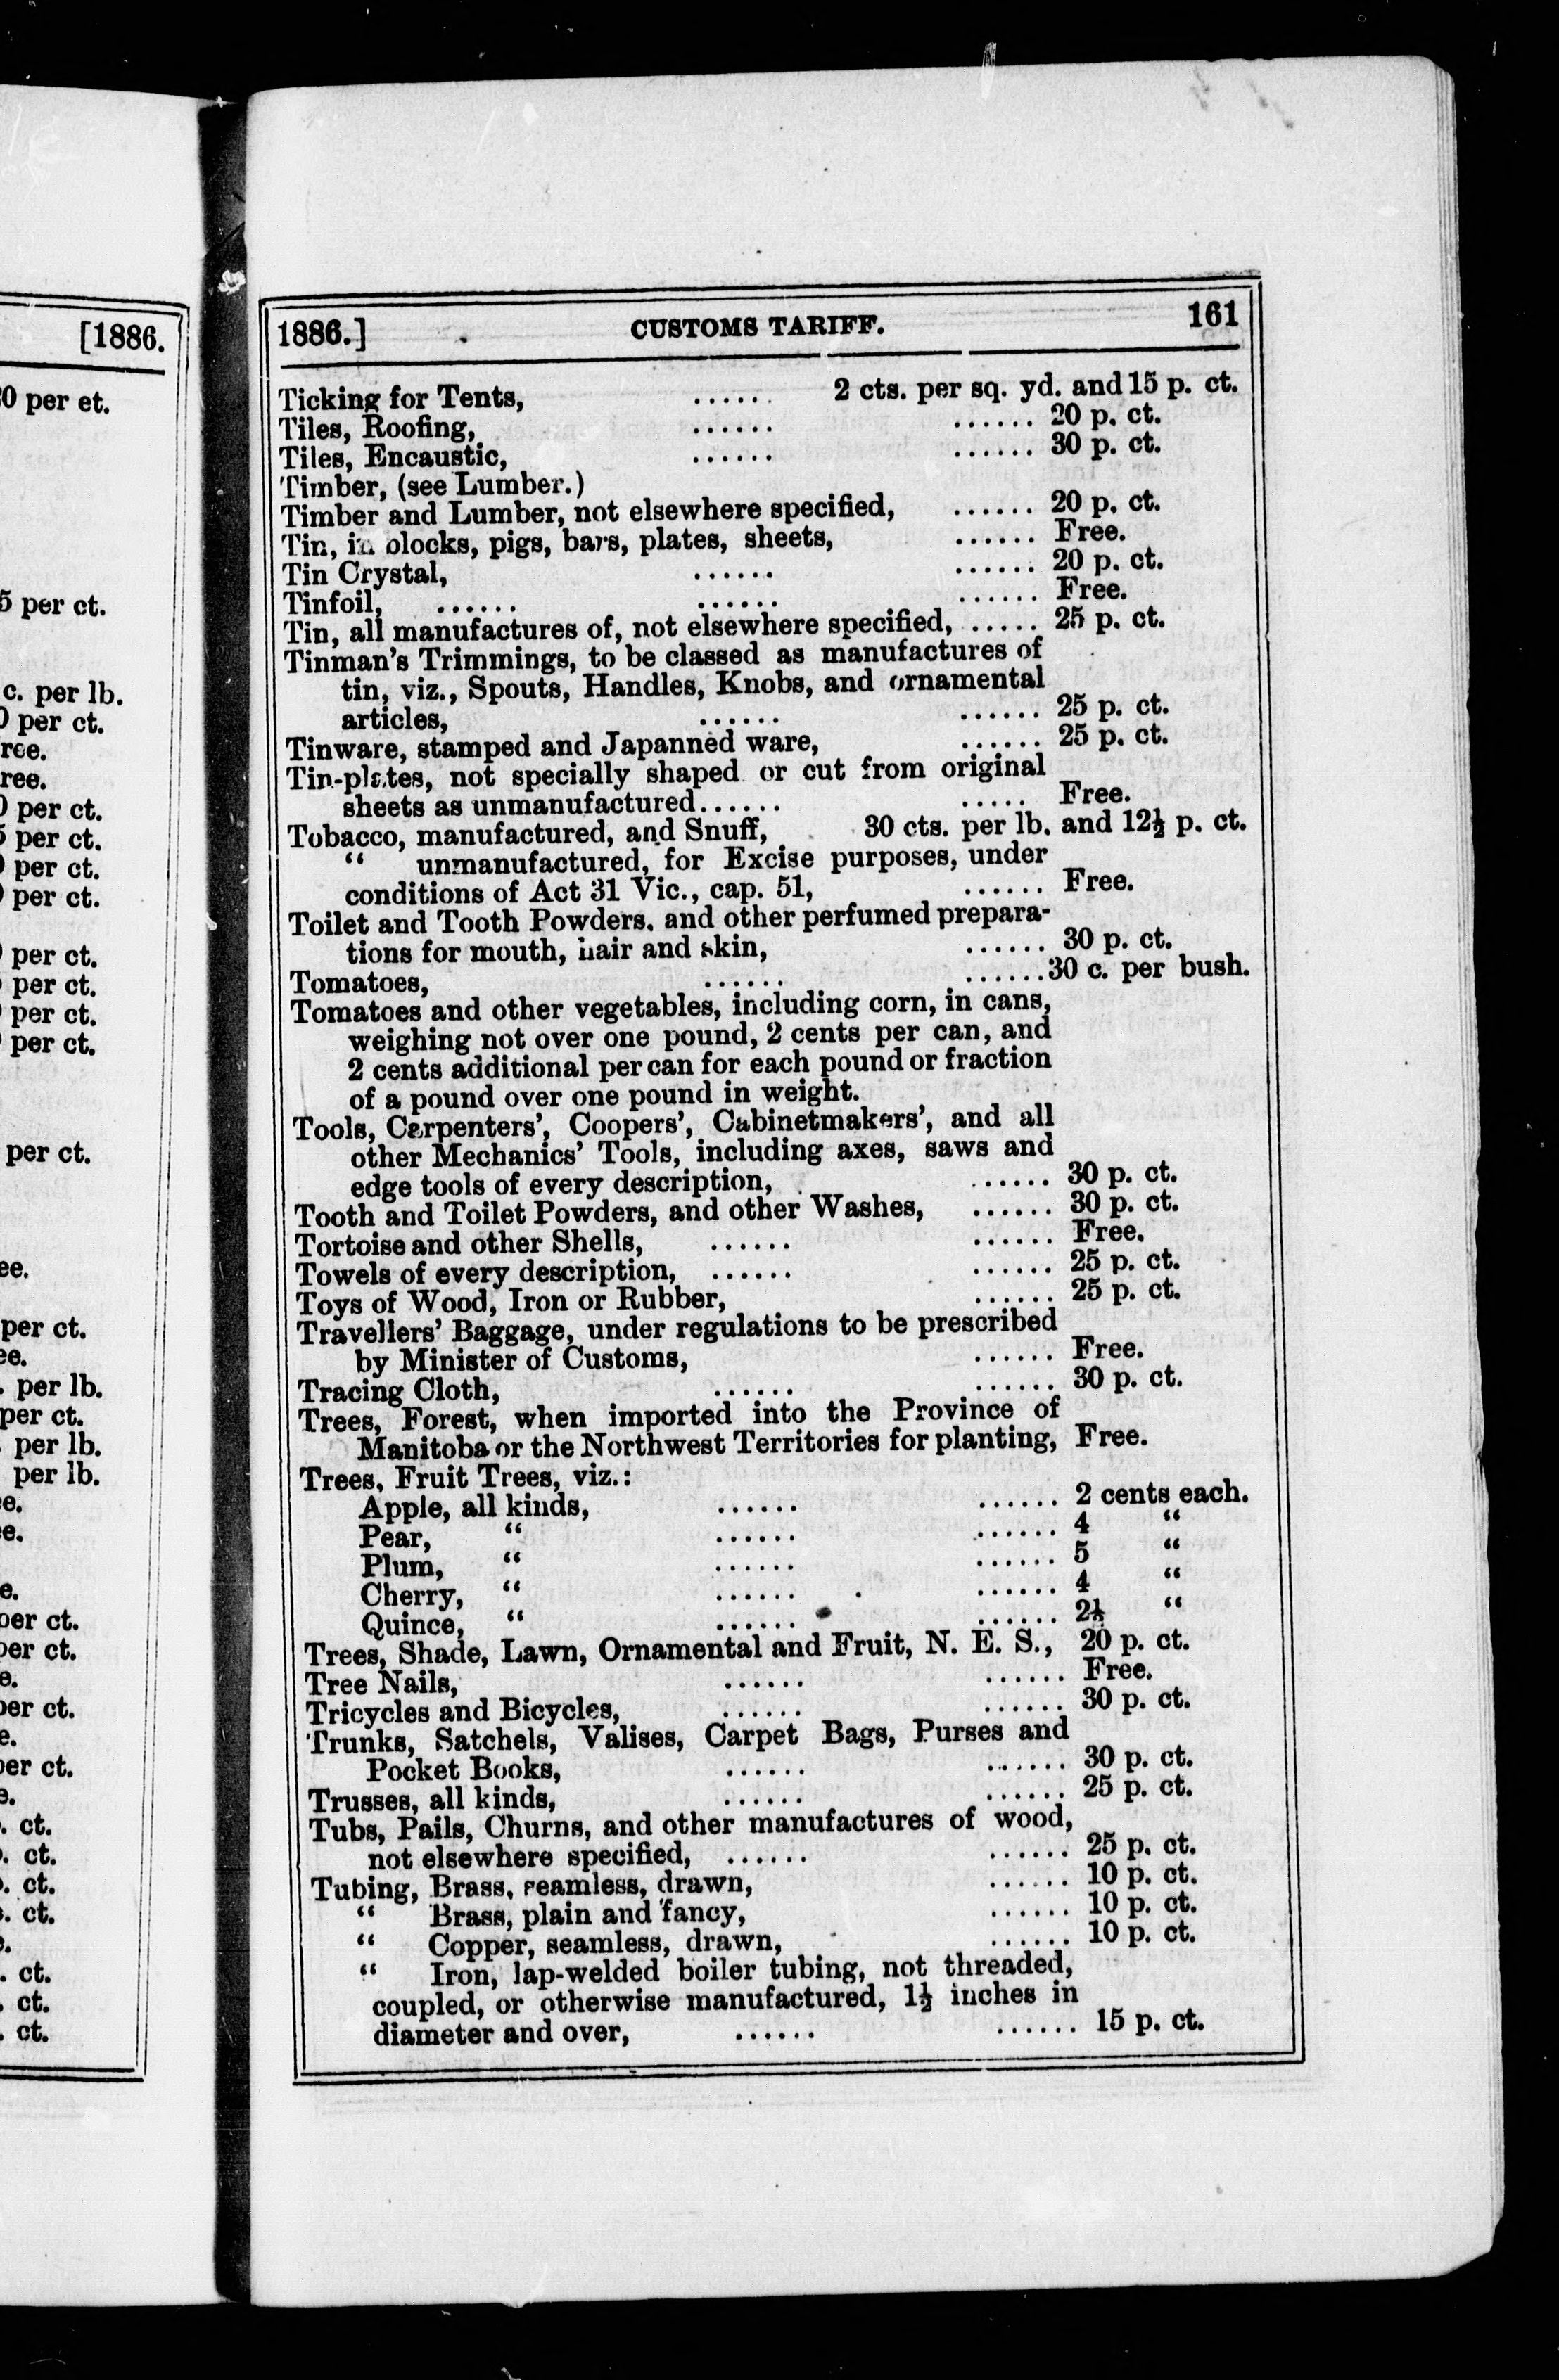 [1886.
0 per et.
5 per ct.
c. per lb.
per ct.
ree.
ree.
per ct.
per ct.
per ct.
per ct.
per ct.
per ct.
per ct.
per ct.
per ct.
ee.
per ct.
ee.
per lb.
per ct.
per lb.
per lb.
e.
e.
e.
per ct.
per ct.
e.
per ct.
e.
per ct.
e.
. ct.
. ct.
. ct.
. ct.
. ct.
. ct.
. ct.
1886.] CUSTOMS TARIFF. 161
Ticking for Tents, ...... 2 cts. per sq. yd. and 15 p. ct.
Tiles, Roofing, ...... ...... 20 p. ct.
Tiles, Encaustic, ...... ...... 30 p. ct.
Timber, (see Lumber.)
Timber and Lumber, not elsewhere specified, ...... 20 p. ct.
Tin, in blocks, pigs, bars, plates, sheets, ...... Free.
Tin Crystal, ...... ...... 20 p. ct.
Tinfoil, ...... ...... ...... Free.
Tin, all manufactures of, not elsewhere specified, ..... 25 p. ct.
Tinman's Trimmings, to be classed as manufactures of
tin, viz., Spouts, Handles, Knobs, and ornamental
articles, ...... ...... 25 p. ct.
Tinware, stamped and Japanned ware, ...... 25 p. ct.
Tin-plates, not specially shaped or cut from original
sheets as unmanufactured...... ..... Free.
Tobacco, manufactured, and Snuff, 30 cts. per lb. and 12½ p. ct.
“ unmanufactured, for Excise purposes, under
conditions of Act 31 Vic., cap. 51, ...... Free.
Toilet and Tooth Powders, and other perfumed prepara-
tions for mouth, hair and skin, ...... 30 p. ct.
Tomatoes, ...... ......30 c. per bush.
Tomatoes and other vegetables, including corn, in cans,
weighing not over one pound, 2 cents per can, and
2 cents additional per can for each pound or fraction
of a pound over one pound in weight.
Tools, Carpenters', Coopers', Cabinetmakers', and all
other Mechanics' Tools, including axes, saws and
edge tools of every description, ...... 30 p. ct.
Tooth and Toilet Powders, and other Washes, ...... 30 p. ct.
Tortoise and other Shells, ...... ...... Free.
Towels of every description, ...... ...... 25 p. ct.
Toys of Wood, Iron or Rubber, ...... 25 p. ct.
Travellers' Baggage, under regulations to be prescribed
by Minister of Customs, ...... Free.
Tracing Cloth, ...... ...... 30 p. ct.
Trees, Forest, when imported into the Province of
Manitoba or the Northwest Territories for planting, Free.
Trees, Fruit Trees, viz.:
Apple, all kinds, ...... ...... 2 cents each.
Pear, “ ...... ...... 4 “
Plum, “ ...... ...... 5 “
Cherry, “ ...... ...... 4 “
Quince, “ ...... ...... 2½ “
Trees, Shade, Lawn, Ornamental and Fruit, N. E. S., 20 p. ct.
Tree Nails, ...... ...... Free.
Tricycles and Bicycles, ...... ...... 30 p. ct.
Trunks, Satchels, Valises, Carpet Bags, Purses and
Pocket Books, ...... ...... 30 p. ct.
Trusses, all kinds, ...... ...... 25 p. ct.
Tubs, Pails, Churns, and other manufactures of wood,
not elsewhere specified, ...... ...... 25 p. ct.
Tubing, Brass, seamless, drawn, ...... 10 p. ct.
“ Brass, plain and fancy, ...... 10 p. ct.
“ Copper, seamless, drawn, ...... 10 p. ct.
“ Iron, lap-welded boiler tubing, not threaded,
coupled, or otherwise manufactured, 1½ inches in
diameter and over, ...... ...... 15 p. ct.